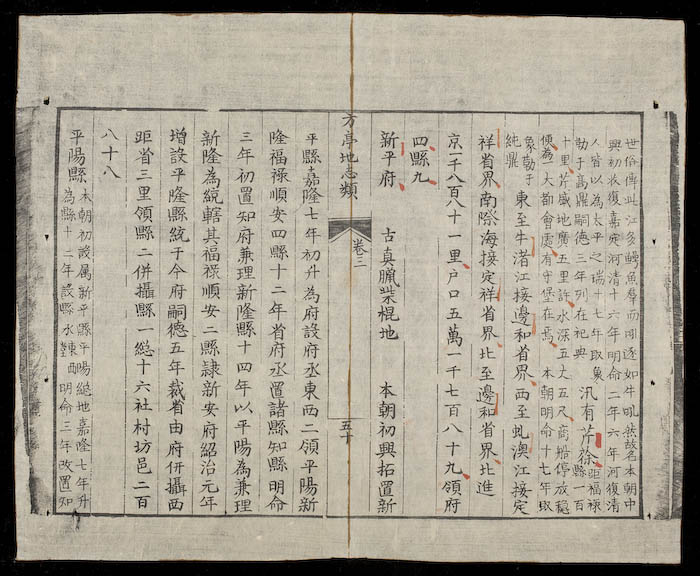 世俗傳此江多鱄魚羣而鳴逐如牛吼然故名本朝中
興初收復嘉定河清十六年明命二年六年河復清
人皆以為太平之瑞十七年取象
勒于高鼎嗣德三年列在祀典
汛有芹蒢
距福祿
縣一百
十里芹地廣五里許水深五丈五尺商船停放穩
便為一大都會處有守堡在焉 本朝明命十七年取
象勒于
純鼎
東至牛渚江接邊和省界西至虬澳江接定
祥省界南際海接定祥省界北至邊和省界北進
京一千八百八十一里户口五萬一千七百八十九領府
四縣九
新平府 古真臘柴棍地 本朝初興拓置新
方亭地志類 卷二 五十
平縣嘉隆七年初升為府設府丞東西二領平陽新
隆福祿順安四縣十二年省府丞置諸縣知縣明命
三年初置知府兼理新隆縣十四年以平陽為兼理
新隆為統轄其福祿順安二縣隷新安府紹治元年
增設平隆縣統于今府嗣德五年裁省由府併攝西
距省三里領縣二併攝縣一總十六社村坊邑二百
八十八
平陽縣
本朝初設属新平縣平陽總地嘉隆七年升
為縣十二年設縣丞東西二明命三年改置知